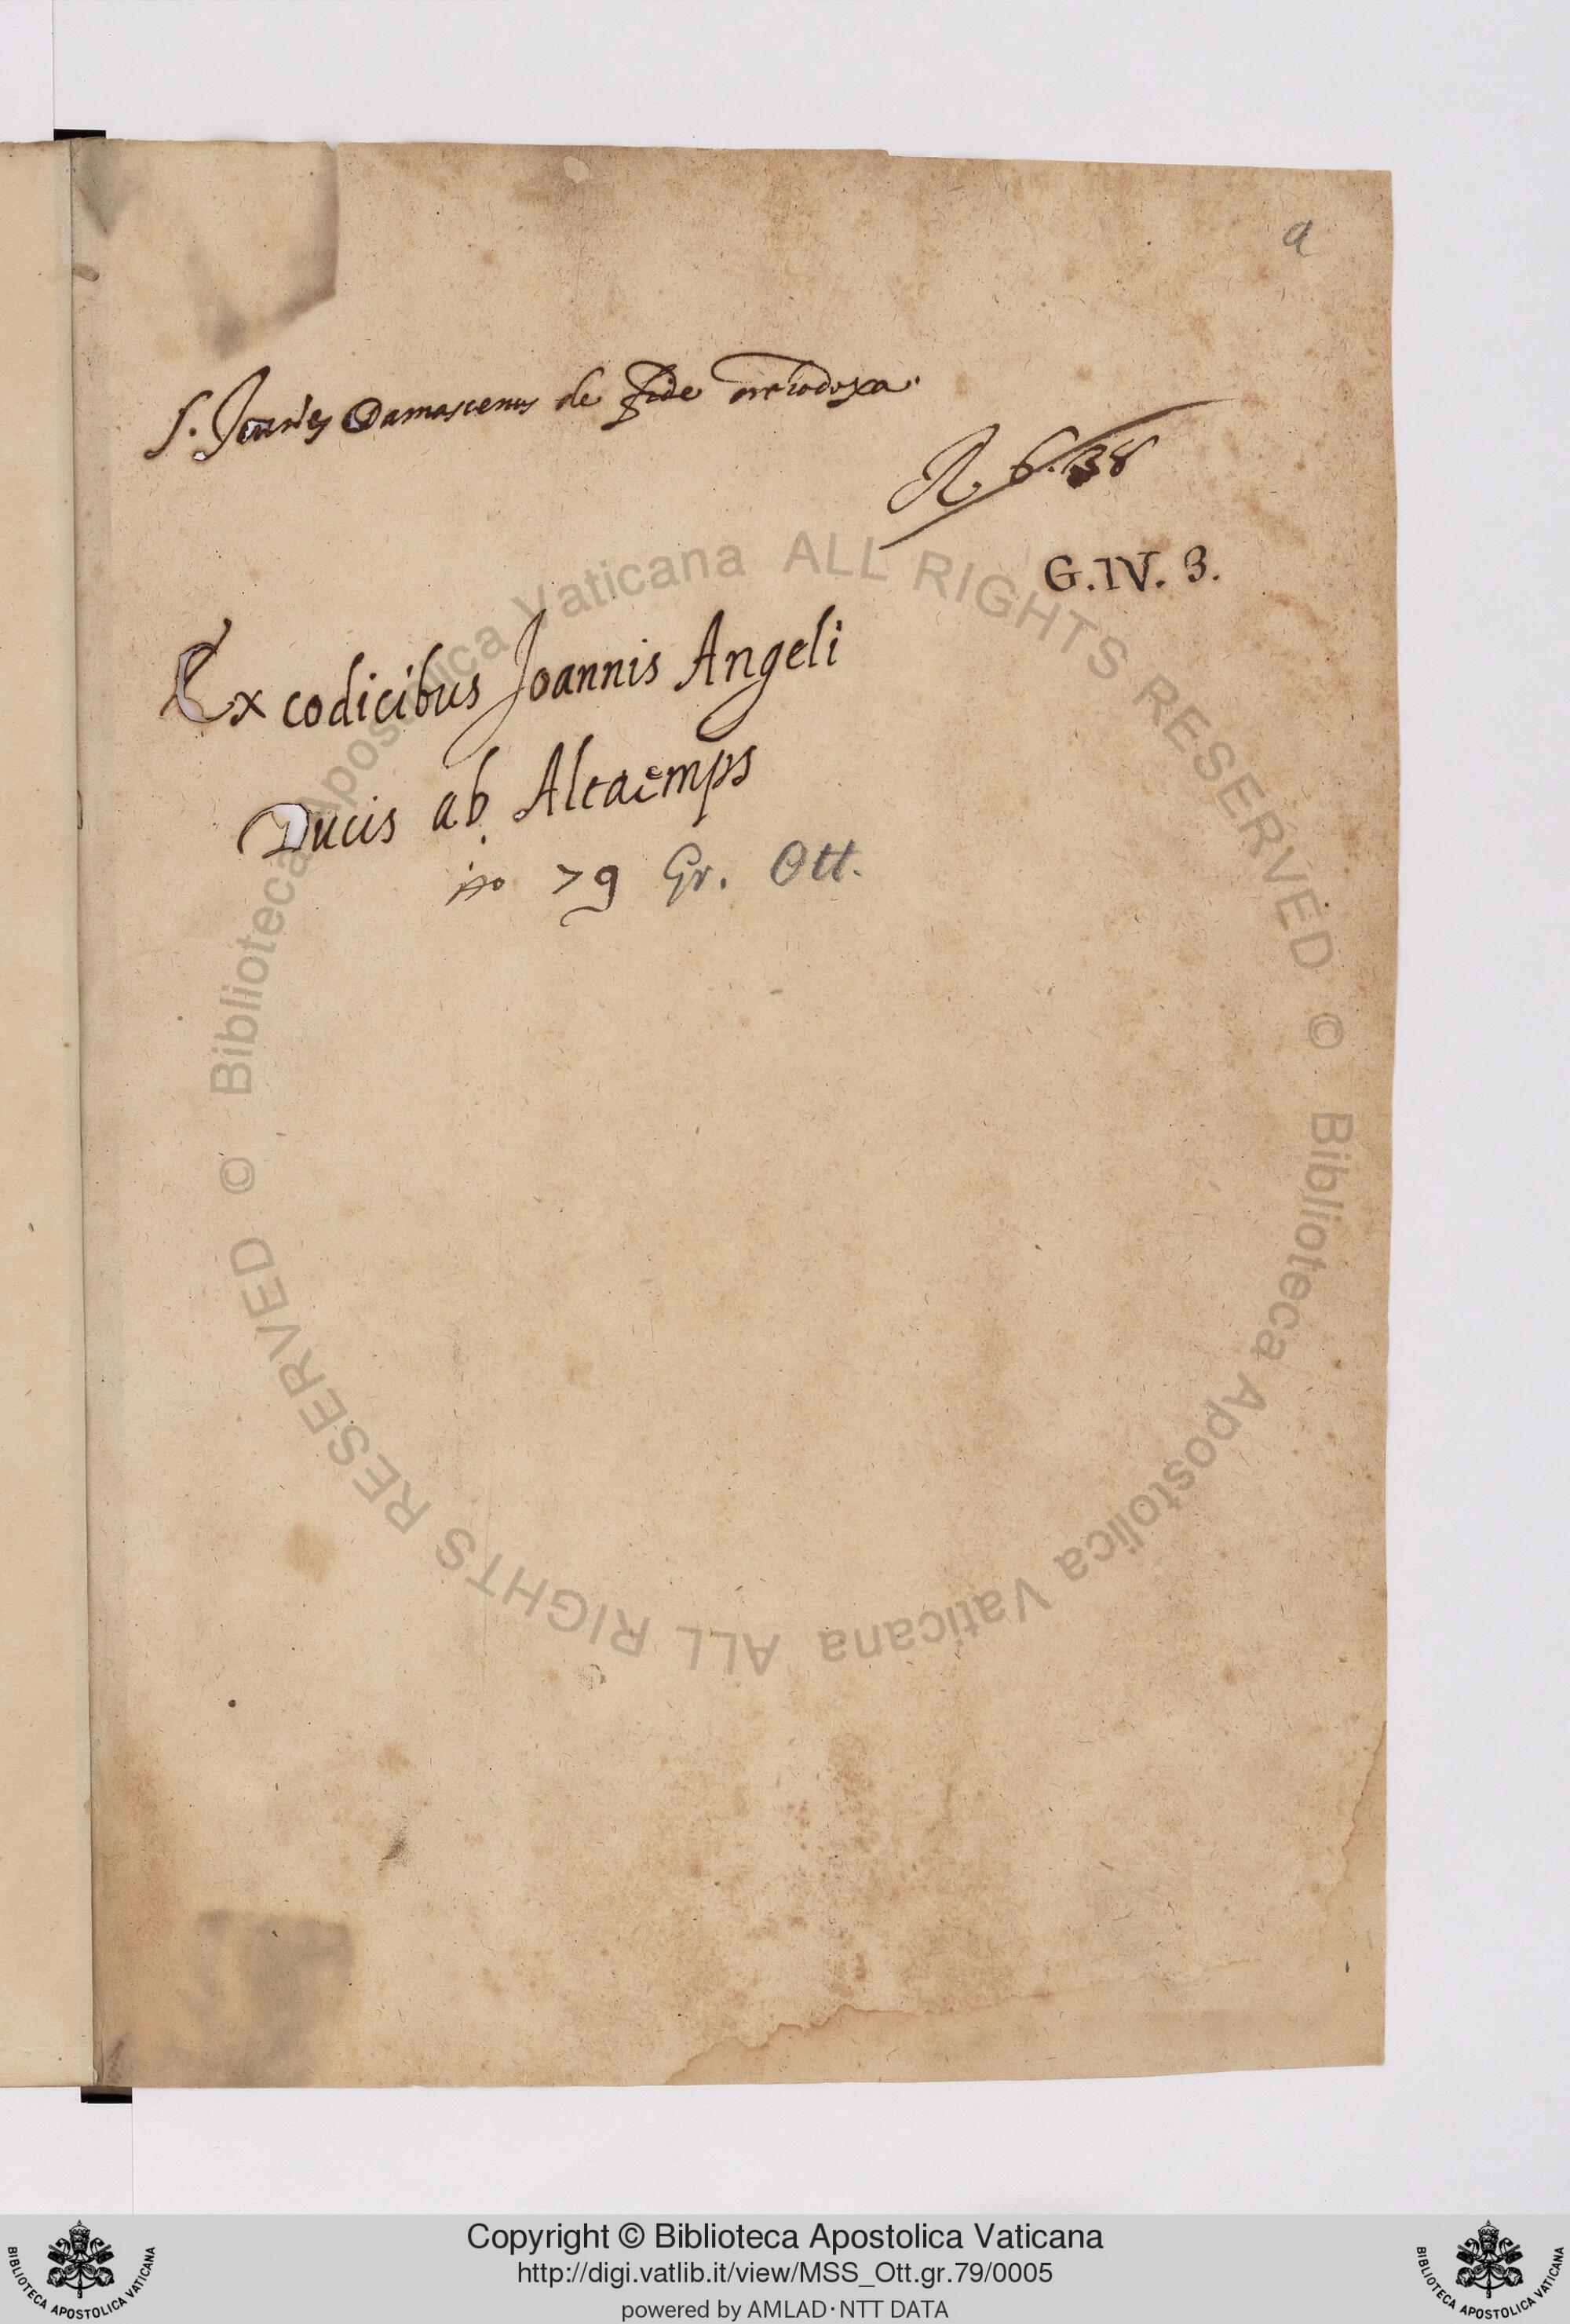 a
S. Joan̄es Damascenus de Fide orthodoxa.
R. 6. 38
G.IV. 3.
Ex codicibus Joannis Angeli
Ducis ab Altaemps
79 Gr. Ott.
© Biblioteca Apostolica Vaticana ALL RIGHTS RESERVED
© Biblioteca Apostolica Vaticana ALL RIGHTS RESERVED
BIBLIOTECA APOSTOLICA VATICANA
Copyright © Biblioteca Apostolica Vaticana
http://digi.vatlib.it/view/MSS_Ott.gr.79/0005
powered by AMLAD·NTT DATA
BIBLIOTECA APOSTOLICA VATICANA